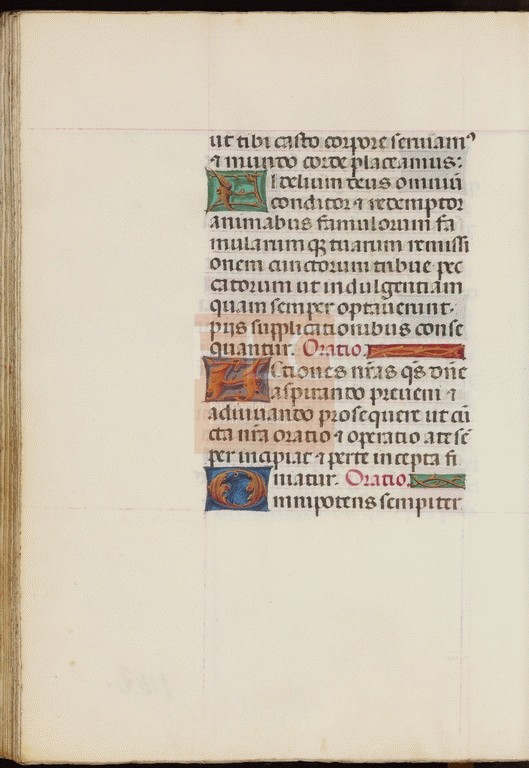 ut tibi casto corpore seruiam⁹
⁊ mundo corde placeamus:
Fidelium deus omniũ
conditor ⁊ redemptor
animabus famulorum fa
mularumqꝫ tuarum remissi
onem cunctorum tribue pec
catorum ut indulgentiam
quam semper optauerunt.
piis supplicationibus conse
quantur. Oratio.
Actiones nr̃as q̃s dñe
aspirando preueni ⁊
adiuuando prosequere ut cũ
cta nr̃a oratio ⁊ operatio a te sẽ
per incipiat ⁊ per te incepta fi
niatur. Oratio.
Omnipotens sempiter